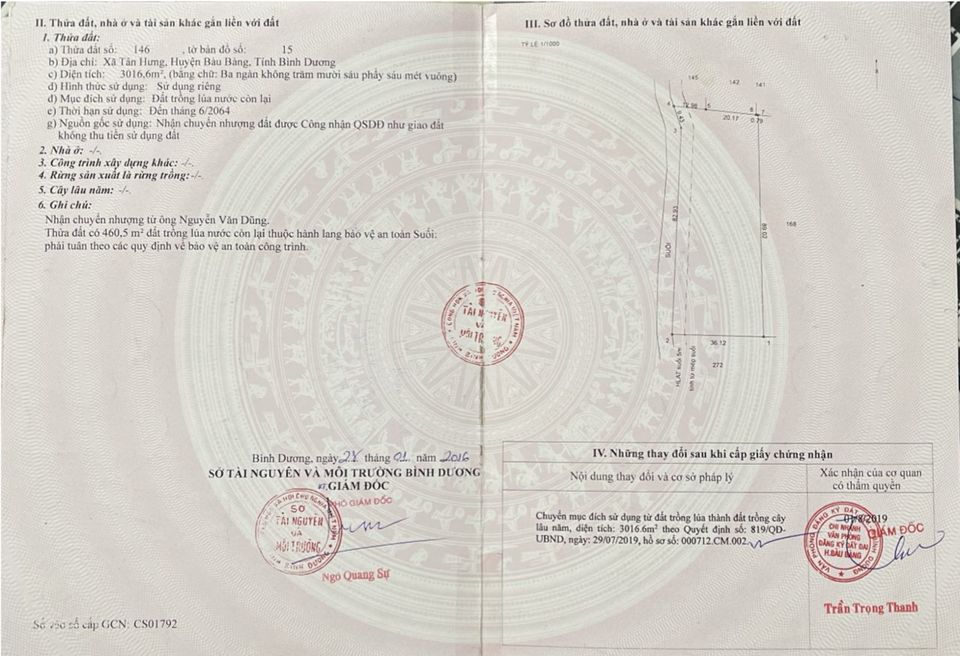 II. Thửa đất, nhà ở và tài sản khác gắn liền với đất
1. Thửa đất:
a) Thửa đất số: 146 , tờ bản đồ số: 15
b) Địa chỉ: Xã Tân Hưng, Huyện Bàu Bàng, Tỉnh Bình Dương
c) Diện tích: 3016,6m², (bằng chữ: Ba ngàn không trăm mười sáu phẩy sáu mét vuông)
d) Hình thức sử dụng: Sử dụng riêng
đ) Mục đích sử dụng: Đất trồng lúa nước còn lại
e) Thời hạn sử dụng: Đến tháng 6/2064
g) Nguồn gốc sử dụng: Nhận chuyển nhượng đất được Công nhận QSDĐ như giao đất
không thu tiền sử dụng đất
2. Nhà ở: -/-.
3. Công trình xây dựng khác: -/-.
4. Rừng sản xuất là rừng trồng: -/-.
5. Cây lâu năm: -/-.
6. Ghi chú:
Nhận chuyển nhượng từ ông Nguyễn Văn Dũng.
Thửa đất có 460,5 m² đất trồng lúa nước còn lại thuộc hành lang bảo vệ an toàn Suối:
phải tuân theo các quy định về bảo vệ an toàn công trình.
Bình Dương, ngày 28 tháng 01 năm 2016
SỞ TÀI NGUYÊN VÀ MÔI TRƯỜNG BÌNH DƯƠNG
KT.GIÁM ĐỐC
PHÓ GIÁM ĐỐC
SỞ
TÀI NGUYÊN
VÀ
MÔI TRƯỜNG
Ngô Quang Sự
Số vào sổ cấp GCN: CS01792
TÀI NGUYÊN
VÀ
MÔI TRƯỜNG
III. Sơ đồ thửa đất, nhà ở và tài sản khác gắn liền với đất
TỶ LỆ 1/1000
145
142
141
4
12.98
5
20.17
6
7
0.79
9.43
3
82.93
SUỐI
89.02
168
2
36.12
1
272
HLAT suối 5m
tính từ mép suối
IV. Những thay đổi sau khi cấp giấy chứng nhận
Nội dung thay đổi và cơ sở pháp lý
Xác nhận của cơ quan
có thẩm quyền
Chuyển mục đích sử dụng từ đất trồng lúa thành đất trồng cây
lâu năm, diện tích: 3016.6m² theo Quyết định số: 819/QĐ-
UBND, ngày: 29/07/2019, hồ sơ số: 000712.CM.002
01/8/2019
GIÁM ĐỐC
CHI NHÁNH
VĂN PHÒNG
ĐĂNG KÝ ĐẤT ĐAI
H.BÀU BÀNG
Trần Trọng Thanh